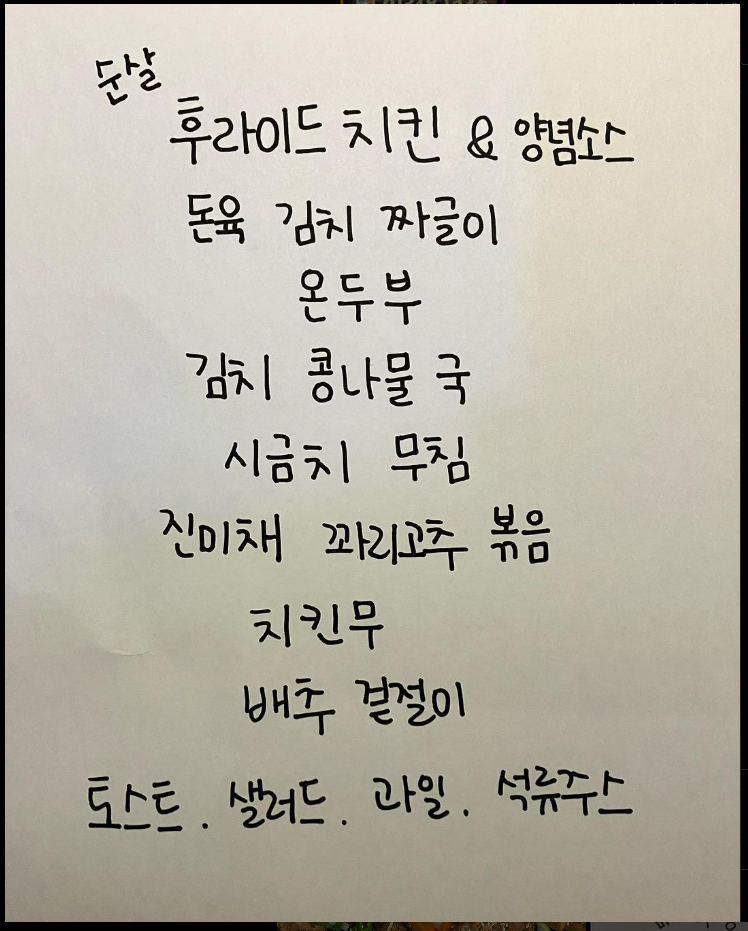 순살
후라이드 치킨 & 양념소스
돈육 김치 짜글이
온두부
김치 콩나물 국
시금치 무침
진미채 꽈리고추 볶음
치킨무
배추 겉절이
토스트. 샐러드. 과일. 석류주스